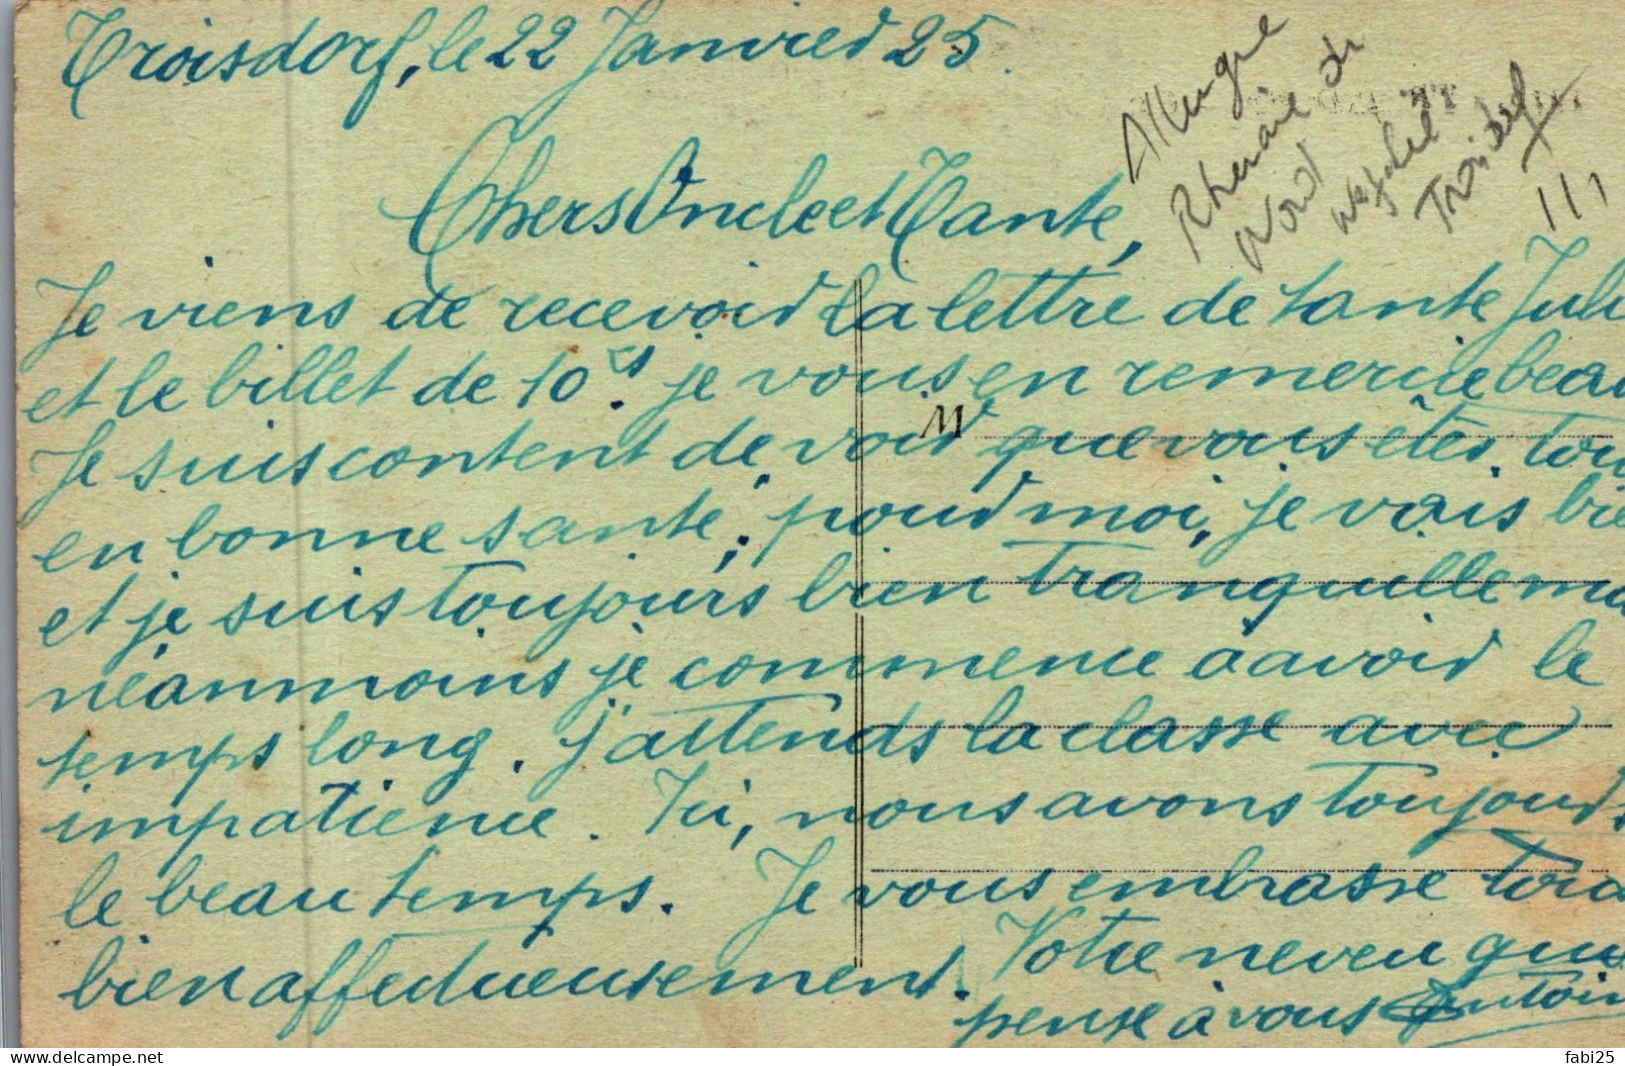 Troisdorf, le 22 Janvier 25.
Chers Oncle et Tante,
Je viens de recevoir la lettre de tante Juli
et le billet de 10 frs. je vous en remercie beau
Je suis content de voir que vous êtes tou
en bonne santé, pour moi, je vais bie
et je suis toujours bien tranquille ma
néanmoins je commence à avoir le
temps long. j'attends la classe avec
impatience. Ici, nous avons toujours
le beau temps. Je vous embrasse tou
bien affectueusement. Votre neveu qui
pense à vous Antoin
M
Rhenanie du
Nord
Troisdorf
fabi25